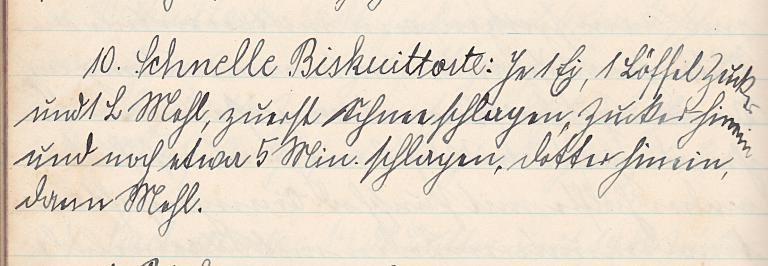 10. Schnelle Biskuittorte: Je 1 Ei, 1 Löffel Zucker
und 1 L Mehl, zuerst Schnee schlagen, Zucker hinein
und noch etwa 5 Min. schlagen, Dotter hinein,
dann Mehl.